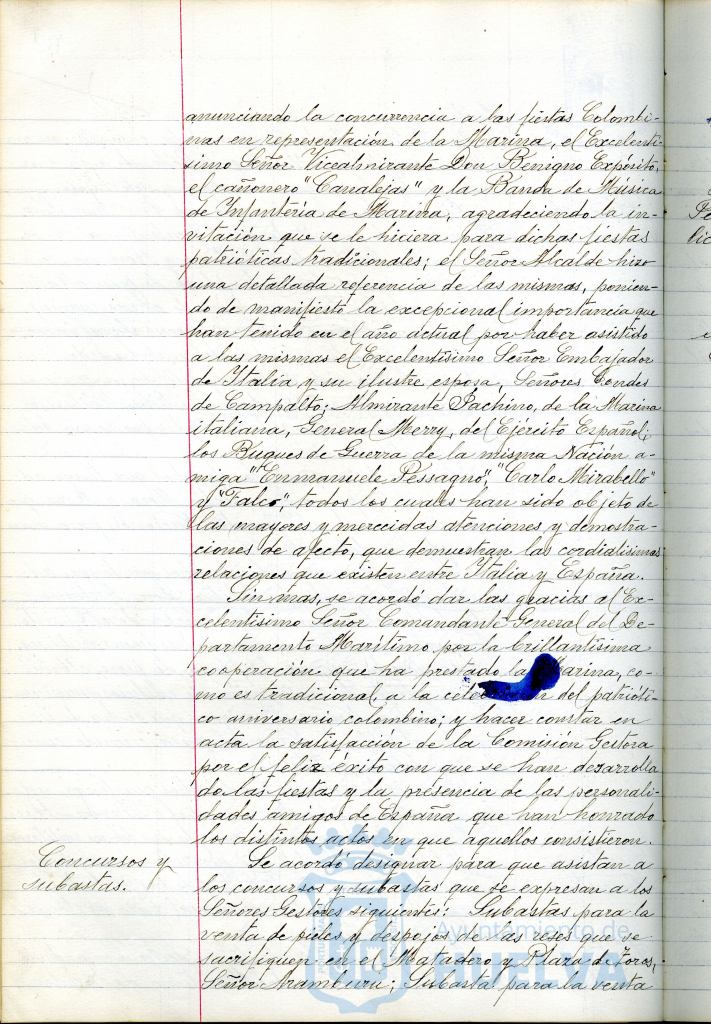 anunciando la concurrencia a las fiestas Colombi-
nas en representación de la Marina, el Excelentí-
simo Señor Vicealmirante Don Benigno Expósito,
el cañonero "Canalejas" y la Banda de Música
de Infantería de Marina, agradeciendo la in-
vitación que se le hiciera para dichas fiestas
patrióticas tradicionales; el Señor Alcalde hizo
una detallada referencia de las mismas, ponien-
do de manifiesto la excepcional importancia que
han tenido en el año actual por haber asistido
a las mismas el Excelentísimo Señor Embajador
de Italia y su ilustre esposa, Señores Condes
de Campalto; Almirante Iachino, de la Marina
italiana, General Merry, del Ejército Español;
los Buques de Guerra de la misma Nación a-
miga "Enmanuele Pessagno", "Carlo Mirabello"
y "Falco", todos los cuales han sido objeto de
las mayores y merecidas atenciones y demostra-
ciones de afecto, que demuestran las cordialísimas
relaciones que existen entre Italia y España.
Sin mas, se acordó dar las gracias al Ex-
celentísimo Señor Comandante General del De-
partamento Marítimo por la brillantísima
cooperación que ha prestado la Marina, co-
mo es tradicional, a la del patrióti-
co aniversario colombino; y hacer constar en
acta la satisfacción de la Comisión Gestora
por el feliz éxito con que se han desarrolla
do las fiestas y la presencia de las personali-
dades amigos de España que han honrado
los distintos actos en que aquellos consistieron.
Concursos y
subastas.
Se acordó designar para que asistan a
los concursos y subastas que se expresan a los
Señores Gestores siguientes: Subastas para la
venta de pieles y despojos de las reses que se
sacrifiquen en el Matadero y Plaza de Toros,
Señor Aramburu; Subasta para la venta
Ayuntamiento de
HUELVA